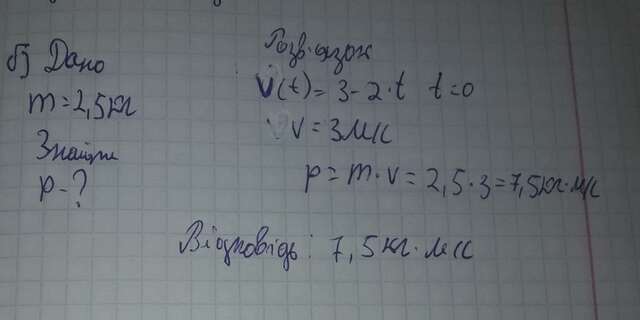 б) Дано
m = 2,5 кг
Знайти
p - ?
Розв'язок
V(t) = 3 - 2·t t = 0
V = 3 м/с
p = m·v = 2,5·3 = 7,5 кг·м/с
Відповідь: 7,5 кг·м/с